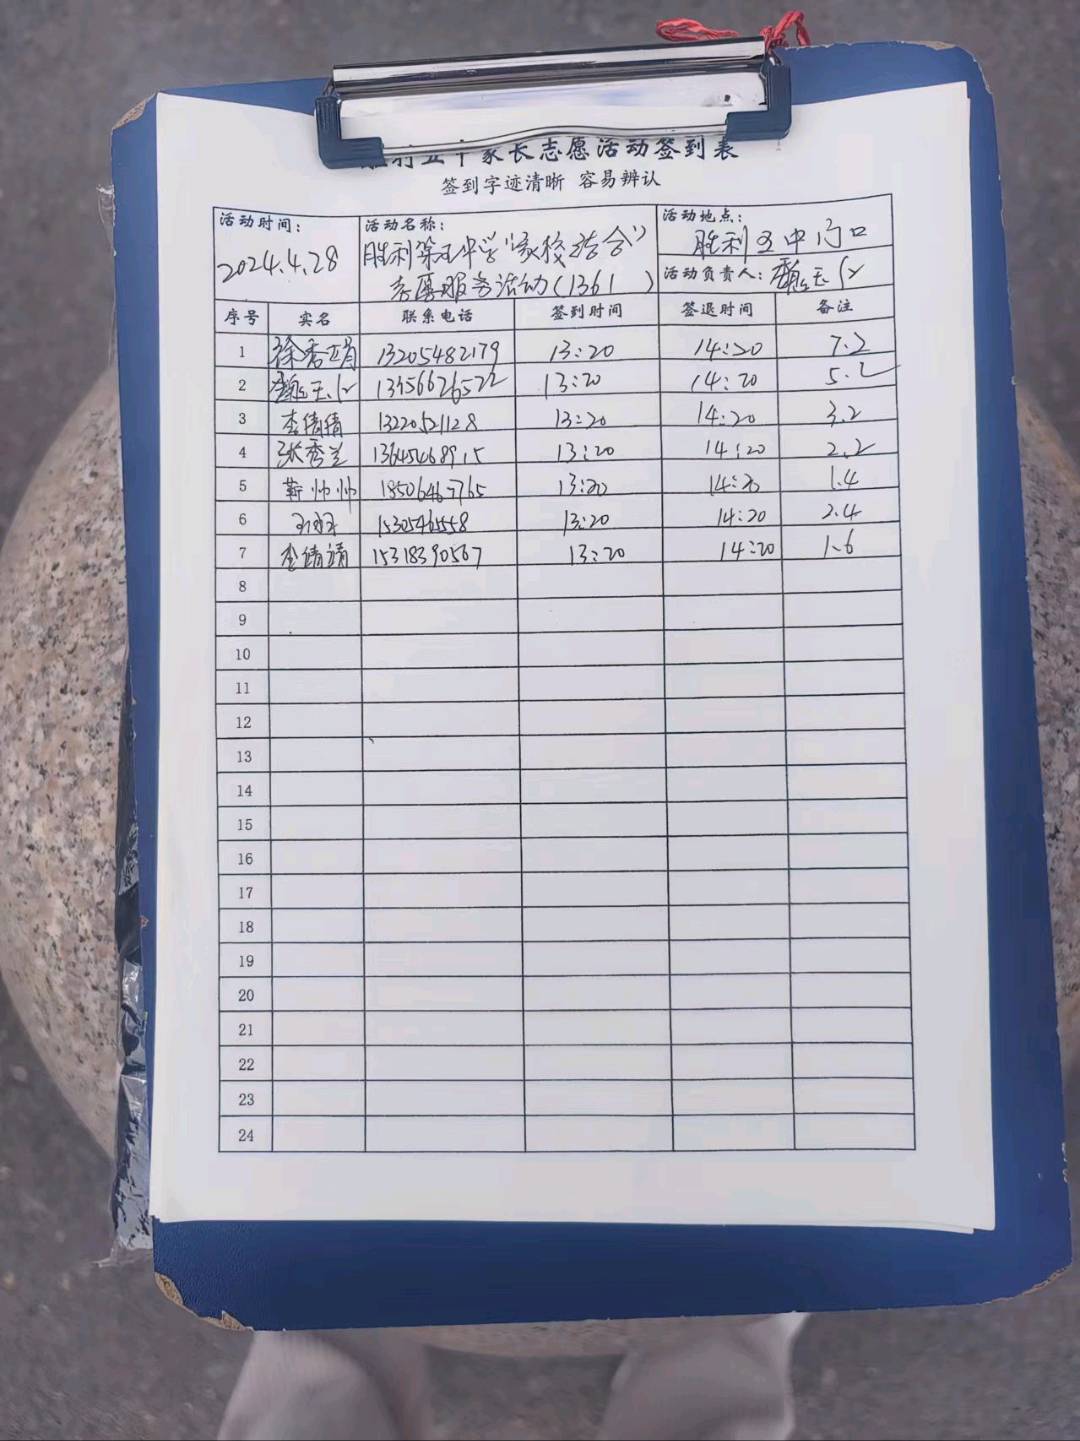 家长志愿活动签到表
签到字迹清晰 容易辨认
活动时间: 2024.4.28
活动名称: 胜利第五中学"家校结合"
志愿服务活动(1361 )
活动地点: 胜利五中门口
活动负责人:
序号 实名 联系电话 签到时间 签退时间 备注
1 徐秀娟 13205482179 13:20 14:20 7.2
2 13:20 14:20 5.2
3 李倩倩 13220521128 13:20 14:20 3.2
4 张秀兰 13645468915 13:20 14:20 2.2
5 靳帅帅 13:20 14:20 1.4
6 13:20 14:20 2.4
7 李倩倩 15318390567 13:20 14:20 1.6
8
9
10
11
12
13
14
15
16
17
18
19
20
21
22
23
24